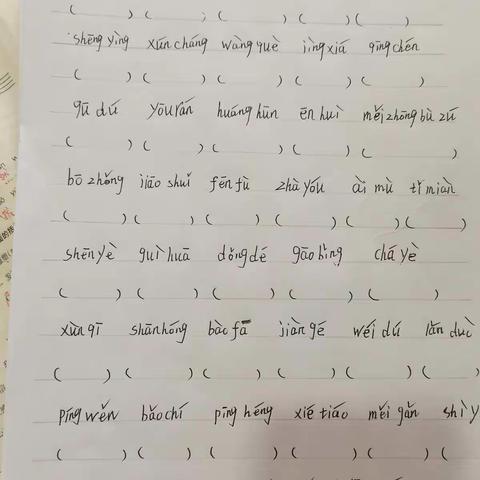 ( ) ( ; ( ) ( ) ( )
shēng yìng xún cháng wàng què jìng xiá qīng chén
( ) ( ) ( ) ( ) ( )
gū dú yōu rán huáng hūn ēn huì měi zhōng bù zú
( ) ( ) ( ) ( ) ( )
bō zhǒng jiāo shuǐ fēn fù zhà yóu ài mù tǐ miàn
( ) ( ) ( ) ( ) ( ) ( )
shēn yè guì huā dǒng dé gāo bǐng chá yè
( ) ( ) ( ) ( ) ( )
xùn qī shān hóng bào fā jiàn gé wéi dú lǎn duò
( ) ( ) ( ) ( ) ( ) (
píng wěn bǎo chí píng héng xié tiáo měi gǎn shì y
( ) ( ) ( ) ( ) ( ) (